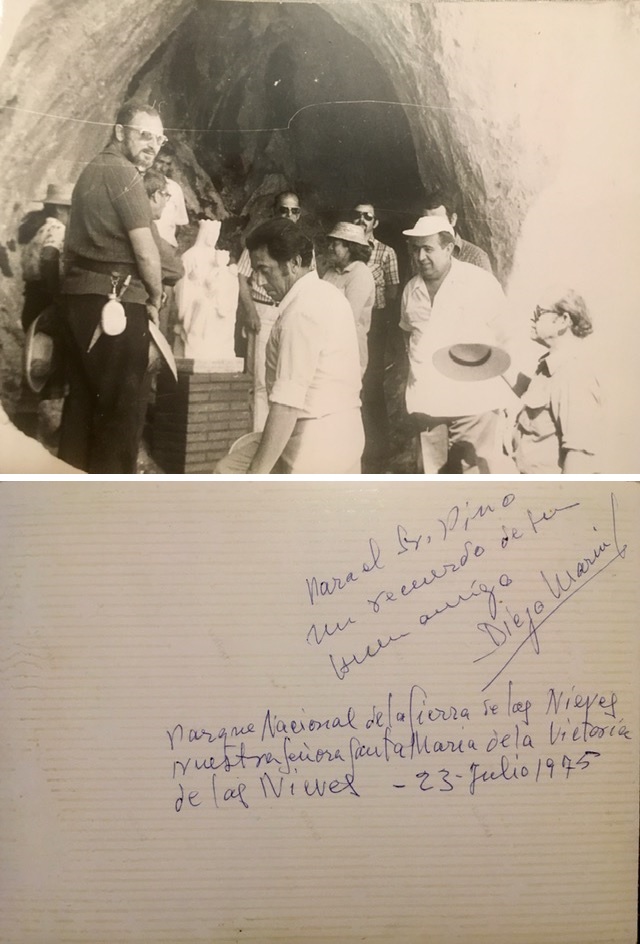 Para el Sr. Pino
un recuerdo de su
buen amigo
Diego Marín
Parque Nacional de la Sierra de las Nieves
nuestra Señora Santa Maria de la Victoria
de las Nieves - 23-Julio 1975